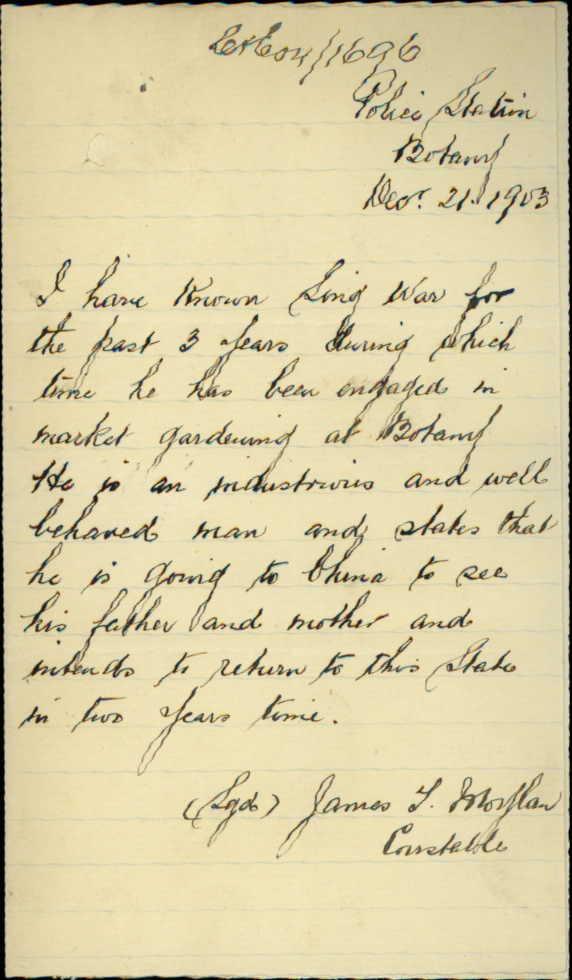 /1696
Police Station
Botany
Decr. 21. 1903
I have Known Sing War for
the past 3 years during which
time he has been engaged in
market gardening at Botany
He is an industrious and well
behaved man and states that
he is going to China to see
his father and mother and
intends to return to this State
in two years time.
(Sgd) James T.
Constable